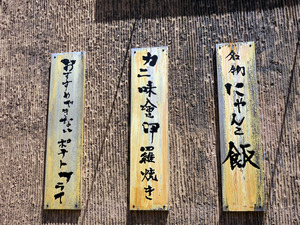 名物 にゃんこ飯
カニ味噌甲羅焼き
おすすめ ポテトフライ